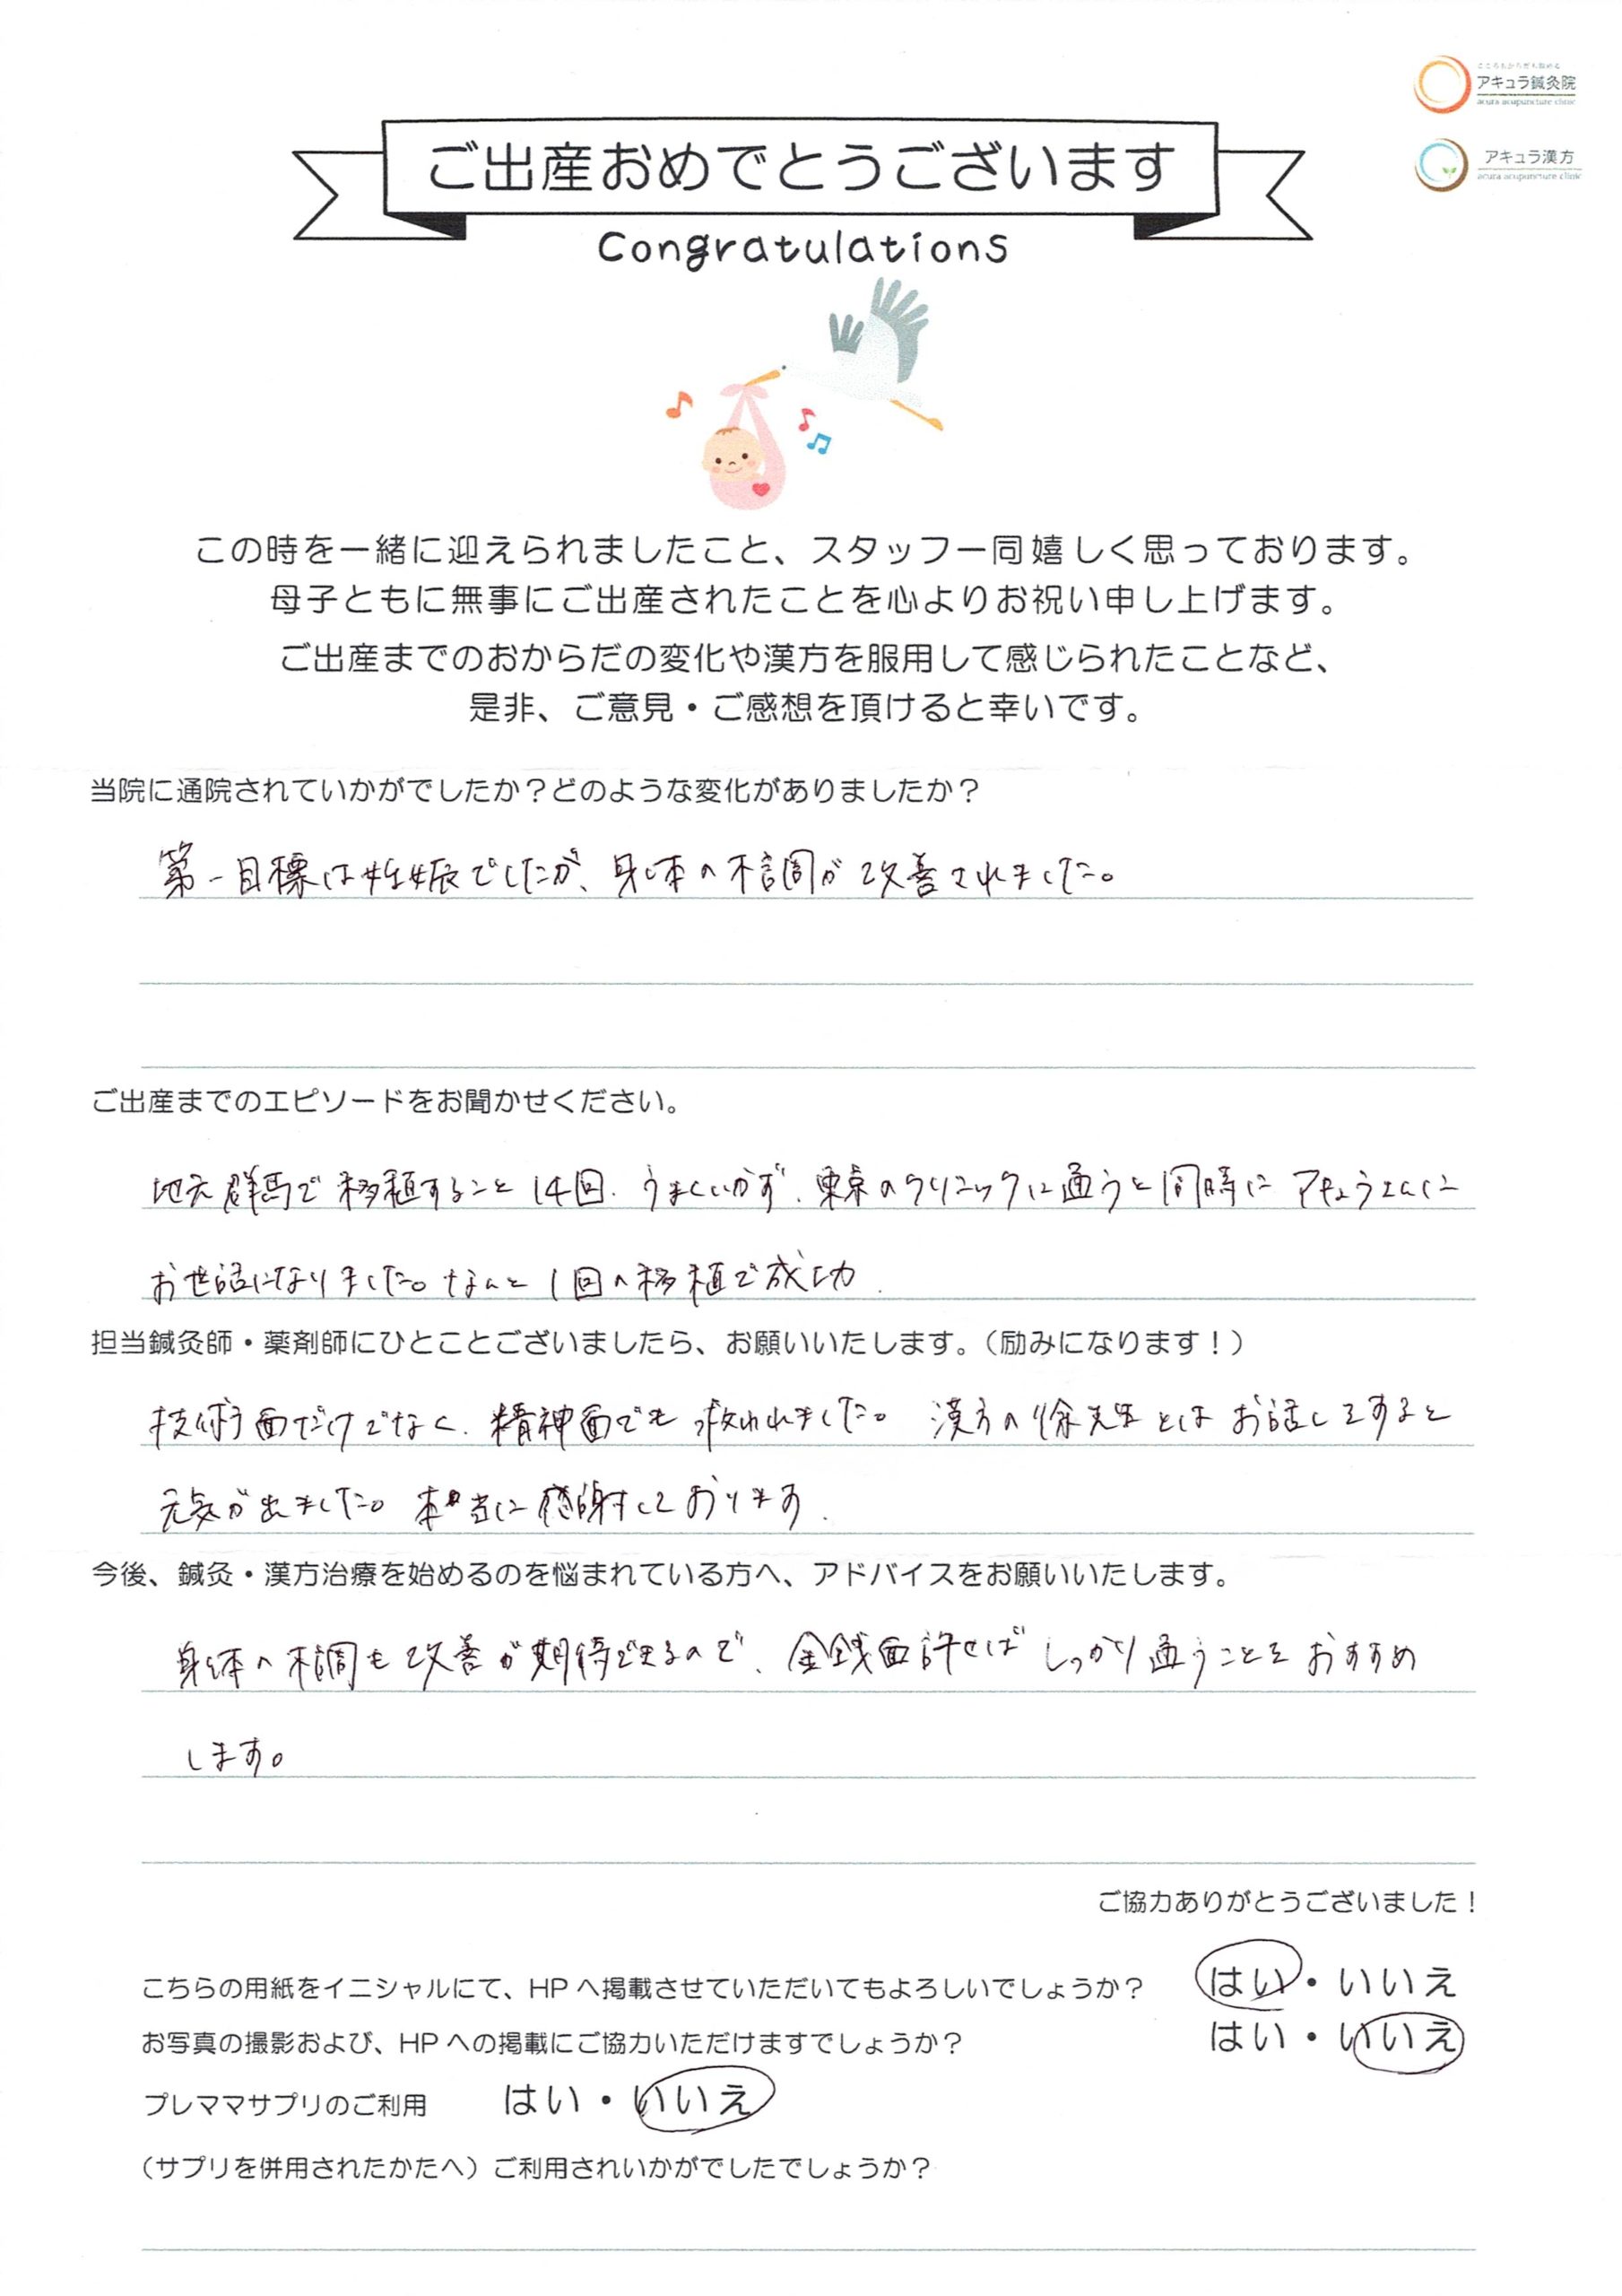 こころもからだも始める
アキュラ鍼灸院
acura acupuncture clinic
アキュラ漢方
acura acupuncture clinic
ご出産おめでとうございます
Congratulations
この時を一緒に迎えられましたこと、スタッフ一同嬉しく思っております。
母子ともに無事にご出産されたことを心よりお祝い申し上げます。
ご出産までのおからだの変化や漢方を服用して感じられたことなど、
是非、ご意見・ご感想を頂けると幸いです。
当院に通院されていかがでしたか？どのような変化がありましたか？
第一目標は妊娠でしたが、身体の不調が改善されました。
ご出産までのエピソードをお聞かせください。
地元群馬で移植すること14回、うまくいかず、東京のクリニックに通うと同時にアキュラさんに
お世話になりました。なんと1回の移植で成功.
担当鍼灸師・薬剤師にひとことございましたら、お願いいたします。（励みになります！）
技術面だけでなく、精神面でも救われました。漢方の徐先生とはお話しをすると
元気が出ました。本当に感謝しております.
今後、鍼灸・漢方治療を始めるのを悩まれている方へ、アドバイスをお願いいたします。
身体の不調も改善が期待できるので、金銭面許せばしっかり通うことをおすすめ
します。
ご協力ありがとうございました！
こちらの用紙をイニシャルにて、HPへ掲載させていただいてもよろしいでしょうか？ はい・いいえ
お写真の撮影および、HPへの掲載にご協力いただけますでしょうか？ はい・いいえ
プレママサプリのご利用 はい・いいえ
（サプリを併用されたかたへ）ご利用されいかがでしたでしょうか？